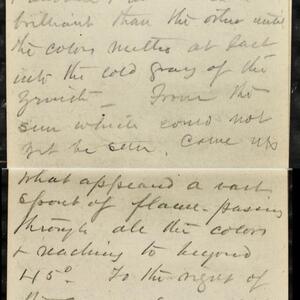 brilliant than the other until
the colors melts at last
into the cold gray of the
zenith — From the
sun which could not
yet be seen, came up
what appeared a vast
spout of flame - passing
through all the colors
& reaching to beyond
45°. To the right of